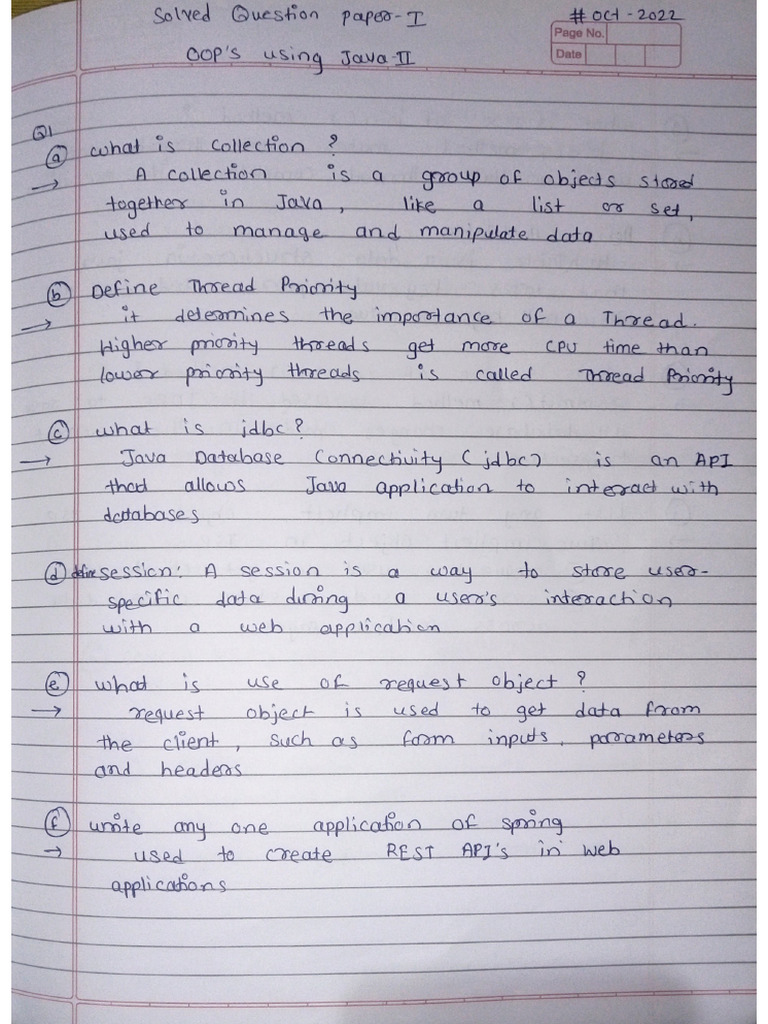 Solved Question paper-I
# Oct-2022
OOP's using Java-II
Page No.
Date
Q1
(a) what is collection ?
→ A collection is a group of objects stored
together in Java, like a list or set,
used to manage and manipulate data
(b) Define Thread Priority
→ it determines the importance of a Thread.
Higher priority threads get more CPU time than
lower priority threads is called Thread Priority
(c) what is jdbc?
→ Java Database Connectivity (jdbc) is an API
that allows Java application to interact with
databases
(d) define session: A session is a way to store user-
specific data during a user's interaction
with a web application
(e) what is use of request object ?
→ request object is used to get data from
the client, such as form inputs, parameters
and headers
(f) write any one application of spring
→ used to create REST API's in web
applications